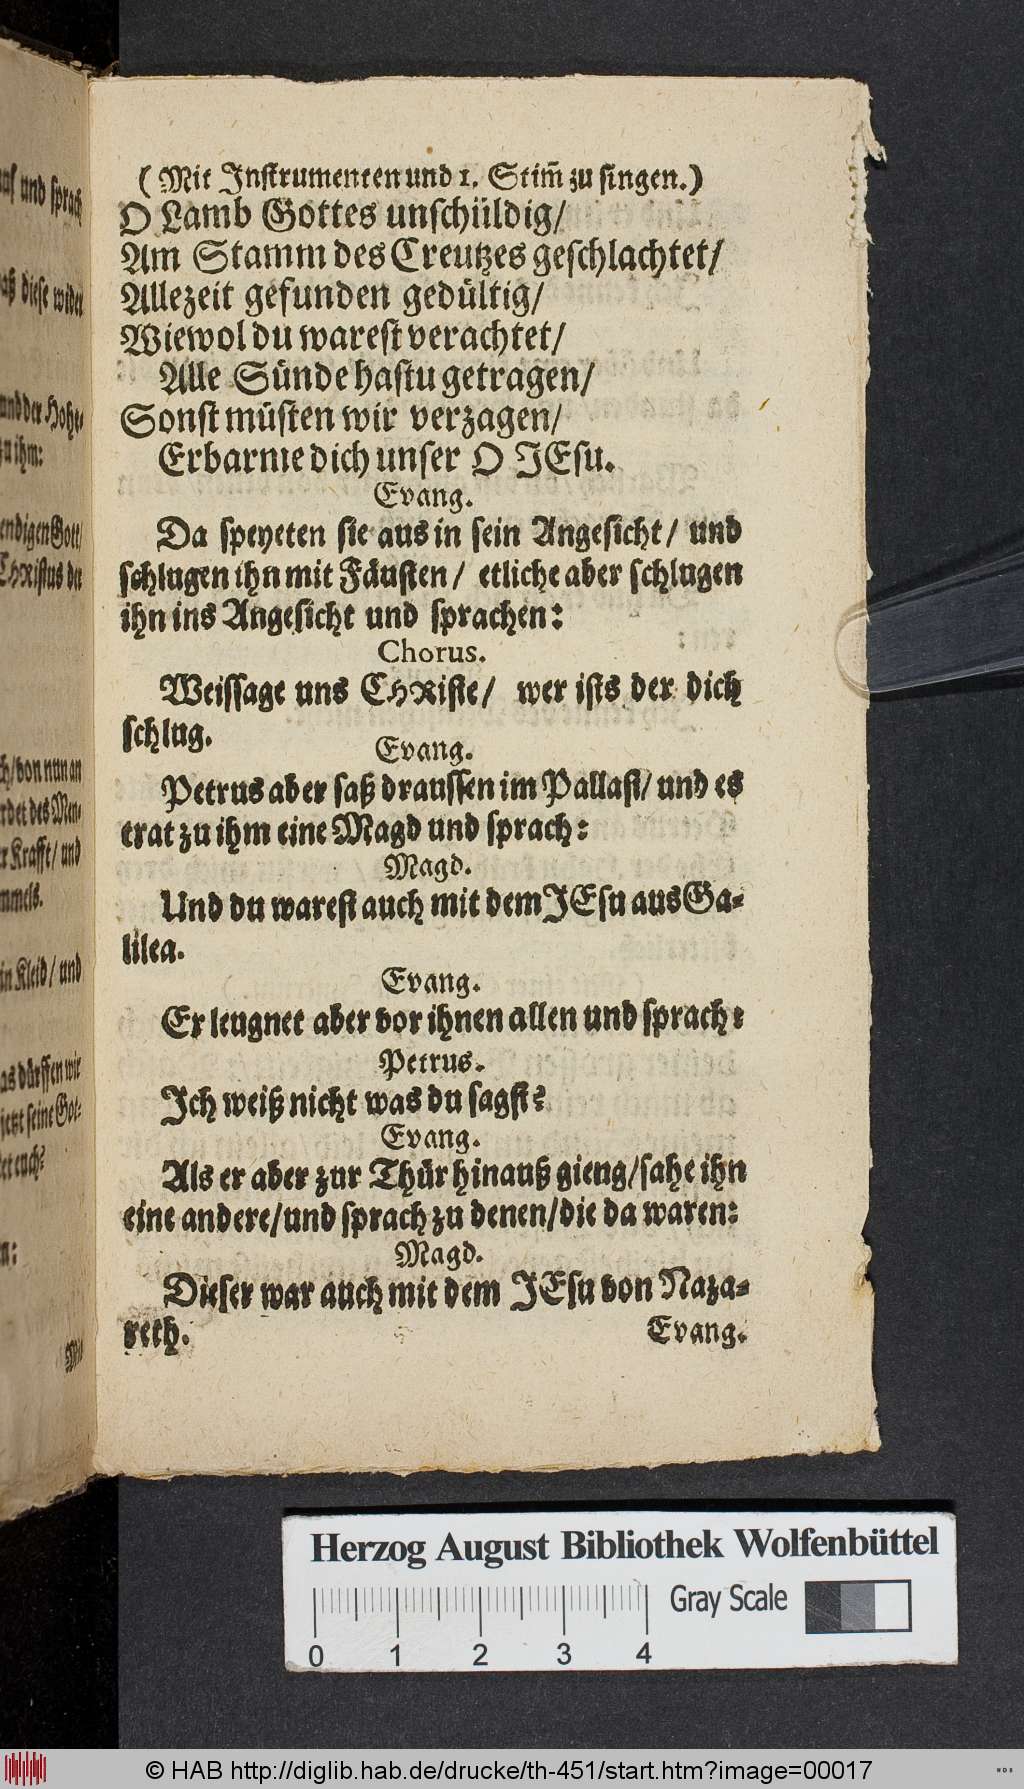 auf und sprach
daß diese wider
und der Hohe-
zu ihm:
Gott/
CHRistus der
von nun an
des Men-
Krafft/ und
Kleid/ und
dürffen wir
jetzt seine Got-
euch?
Mit
(Mit Instrumenten und 1. Stim̃ zu singen.)
O Lamb Gottes unschüldig/
Am Stamm des Creutzes geschlachtet/
Allezeit gefunden gedültig/
Wiewol du warest verachtet/
Alle Sünde hastu getragen/
Sonst müsten wir verzagen/
Erbarme dich unser O JEsu.
Evang.
Da speyeten sie aus in sein Angesicht/ und
schlugen ihn mit Fäusten/ etliche aber schlugen
ihn ins Angesicht und sprachen:
Chorus.
Weissage uns CHRiste/ wer ists der dich
schlug.
Evang.
Petrus aber saß draussen im Pallast/ und es
trat zu ihm eine Magd und sprach:
Magd.
Und du warest auch mit dem JEsu aus Ga-
lilea.
Evang.
Er leugnet aber vor ihnen allen und sprach:
Petrus.
Ich weiß nicht was du sagst?
Evang.
Als er aber zur Thür hinauß gieng/sahe ihn
eine andere/und sprach zu denen/die da waren:
Magd.
Dieser war auch mit dem JEsu von Naza-
reth.
Evang.
Herzog August Bibliothek Wolfenbüttel
Gray Scale
0 1 2 3 4
© HAB http://diglib.hab.de/drucke/th-451/start.htm?image=00017